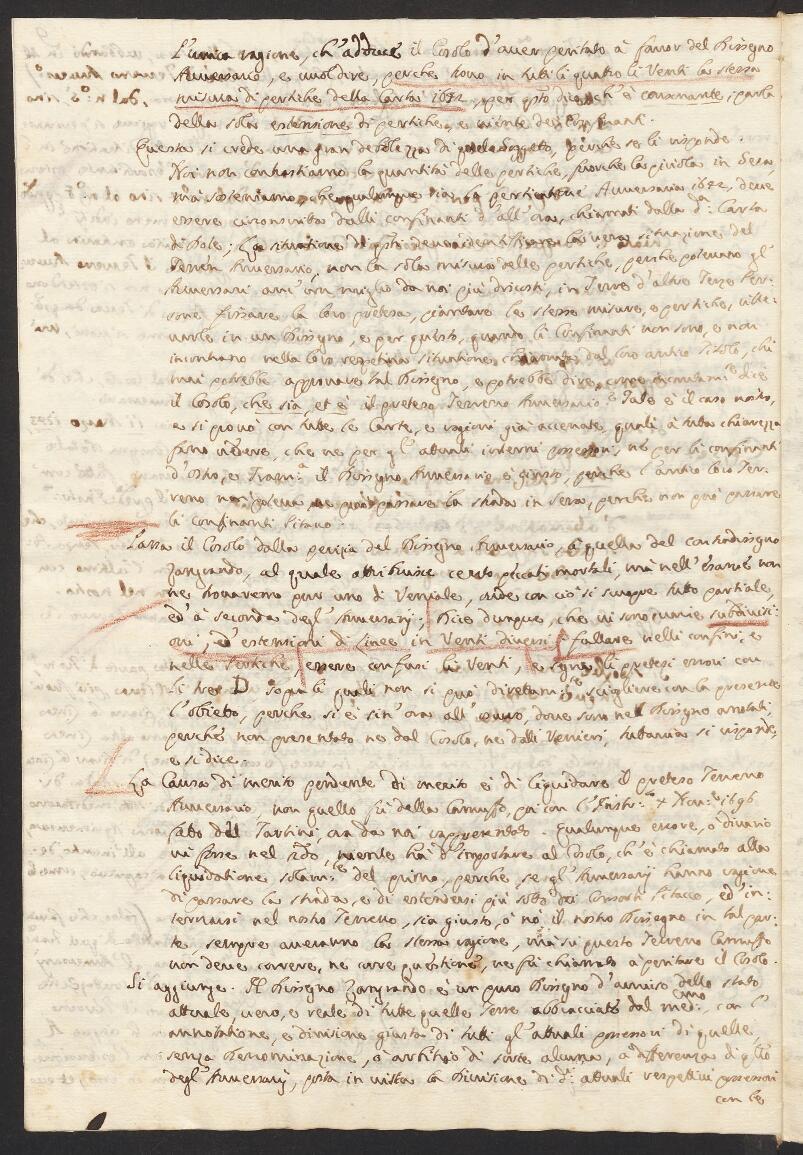 L'unica ragione, ch'adduce il Cosolo d'aver peritato à favor del Dissegno
Aversario, e vuol dire, perche trova in tutti li quatro li Venti la stessa
misura di pertiche della Carta 1622, per q.to dico ch'è consonante, parla
della sola estensione di pertiche, e niente dei Confinanti.
Questa si crede una gran debolezza di quel Soggetto, perche se li risponde.
Noi non contrastiamo la quantità delle pertiche, fuorche la picciola in Sera,
mà sosteniamo, che qualunque sia la Aversaria 1622, deve
essere circonscritta dalli confinanti d'all'ora, chiamati dalla d.a Carta
di Sole; La situatione di q.ti deve identificare la vera situazione del
Terren Aversario, non la sola misura delle pertiche, perche potevano gl'
Aversarj anc'un miglio da noi più discosti, in Terre d'altre Terze Per-
sone fissare la loro pretesa, piantare le stesse misure, e pertiche, ille-
varle in un Dissegno, e per questo, quando li Confinanti non sono, e non
incontrano nella loro respetiva situatione, chiamata dal loro antico Titolo, chi
mai potrebbe approvare tal Dissegno, e potrebbe dire, come incautam.e dice
il Cosolo, che sia, et è il preteso Terreno Aversario. Tale è il caso nostro,
e si provò con tutte le Carte, e ragioni già accenate, quali à tutta chiarezza
fano vedere, che ne per gl'attuali interni possessori, ne per li confinanti
d'Ostro, e Tram.a il Dissegno Aversario è giusto, perche l'antico loro Ter-
reno non poteva ne può passare la strada in Sera, perche non può passare
li confinanti Pitaco.
Passa il Cosolo dalla perizia del Dissegno Aversario, à quella del contradissegno
Zangrando, al quale attribuisce cento peccati mortali, mà nell'esame non
ne troveremo pur uno di Veniale, onde con ciò si scuopre tutto partiale,
ed à seconda degl'Aversarj; Dice dunque, che vi sono varie subdivisi-
oni, ed estensioni di Linee in Venti diversi; fallare nelli confini, e
nelle pertiche, essere confusi li Venti, e segna li pretesi errori con
li tre D sopra li quali non si può diretam.e sciogliere con la presente
l'obietto, perche si è sin'ora all'oscuro, dove sono nel Dissegno annotati,
perche non presentato ne dal Cosolo, ne dalli Venieri, tuttavia si risponde,
e si dice.
La Causa di merito pendente di merito è di liquidare il preteso Terreno
Aversario, non quello fù della Carnuffo, poi con l'Instr.o 1696
fatto del Tartini, ora da noi rappresentato. Qualunque errore, ò divario
vi fosse nel s.do, niente hà d'importare al Cosolo, ch'è chiamato alla
liquidatione solam.te del primo, perche se gl'Aversarj hanno ragione
di passare la strada, e di estendersi più sotto dei Consorti Pitacco, ed in-
ternarsi nel nostro Terreno, sia giusto, ò nò il nostro Dissegno in tal par-
te, sempre averanno la stessa ragione, mà sù questo Terreno Carnuffo
non deve correre, ne corre questione, ne fù chiamato a peritare il Cosolo.
Si aggiunge. Il Dissegno Zangrando è un puro Dissegno d'aviso dello stato
attuale, vero, e reale di tutte quelle Terre abbracciate dal med.mo, con l'
annotatione, e divisione giusta di tutti gl'attuali possessori di quelle,
senza denominazione, ò artificio di sorte alcuna, a differenza di q.llo
degl'Aversarj, posta in vista la divisione di d.i attuali respettivi possessori
con le